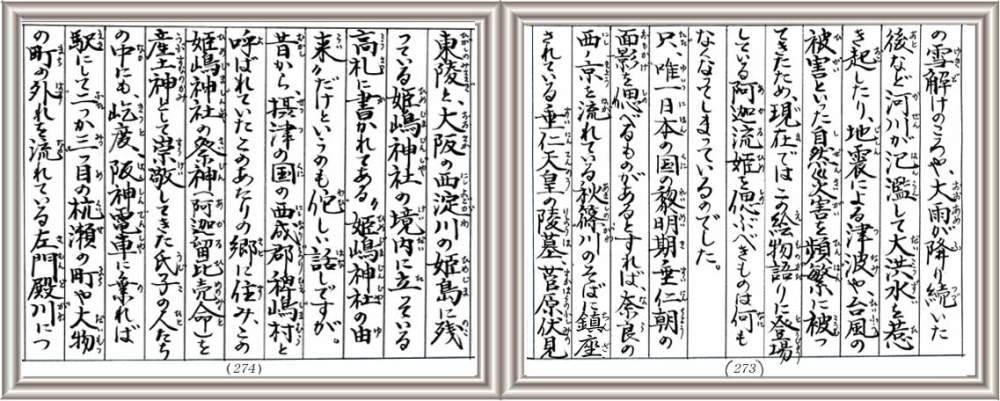 の雪解けのころや、大雨が降り続いた
後など河川が氾濫して大洪水を惹
き起したり、地震による津波や台風の
被害といった自然災害を頻繁に被っ
てきたため、現在ではこの絵物語りに登場
している阿迦流姫を偲ぶべきものは何も
なくなってしまっているのでした。
只、唯一日本の国の黎明期垂仁朝の
面影を偲べるものがあるとすれば、奈良の
西ノ京を流れている秋篠川のそばに鎮座
されている垂仁天皇の陵墓、菅原伏見
(273)
東陵と、大阪の西淀川の姫島に残
っている姫嶋神社の境内に立っている
高札に書かれてある〝姫嶋神社の由
来〟だけというのも侘しい話ですが。
昔から、摂津の国の西成郡稗嶋村と
呼ばれていたこのあたりの郷に住み、この
姫嶋神社の祭神(阿迦留比売命)を
産土神として崇敬してきた氏子の人たち
の中にも、屹度、阪神電車に乗れば
駅にして二つか三つ目の杭瀬の町や大物
の町の外れを流れている左門殿川につ
(274)